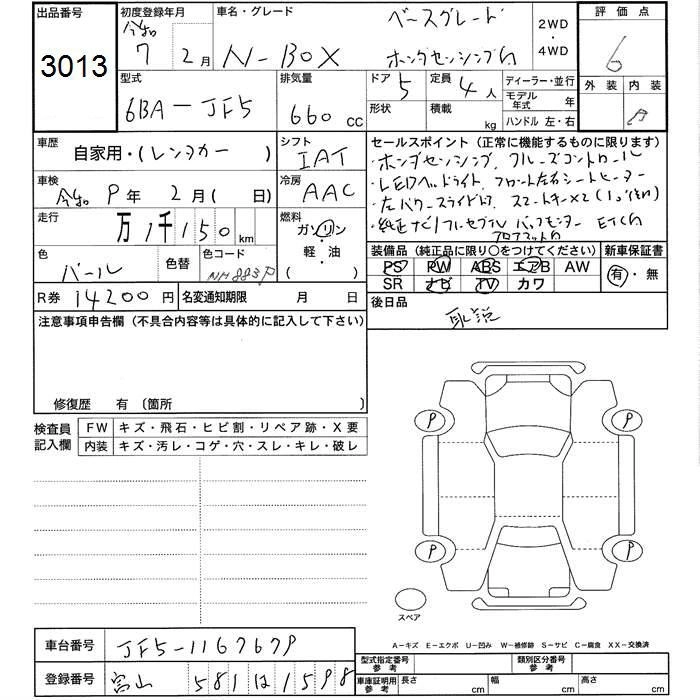 出品番号 初度登録年月 車名・グレード ベースグレード 2WD ・ 4WD 評価点
3013 令和 7 2月 N-BOX ホンダセンシング付 6
型式 排気量 ドア 5 定員 4人 ディーラー・並行 外装 内装
6BA-JF5 660 cc 形状 積載 kg モデル年式 年 A
ハンドル 左・右
車歴 自家用・(レンタカー ) シフト IAT セールスポイント (正常に機能するものに限ります)
・ホンダセンシング、クルーズコントロール
車検 令和 9年 2月 ( 日) 冷房 AAC ・LEDヘッドライト、フロント左右シートヒーター
・左パワースライドドア スマートキー×2
走行 万 1千150 km 燃料 ガソリン ・純正ナビ フルセグTV バックモニター ETC付
・軽・油 ( ) フロアマット付
色 パール 色替 色コード NH883P 装備品 (純正品に限り○をつけてください) 新車保証書
PS PW ABS エアB AW 有・無
SR ナビ TV カワ
R券 14200円 名変通知期限 月 日 後日品
注意事項申告欄 (不具合内容等は具体的に記入して下さい) 取説
修復歴 有 (箇所 )
検査員記入欄 FW キズ・飛石・ヒビ割・リペア跡・X要
内装 キズ・汚レ・コゲ・穴・スレ・キレ・破レ
P P
P P
スペア
A-キズ E-エクボ U-凹み W-補修跡 S-サビ C-腐食 XX-交換済
車台番号 JF5-1167679 型式指定番号 参考 類別区分番号 参考
登録番号 富山 581 は 1598 車庫証明用 参考 長さ cm 幅 cm 高さ cm